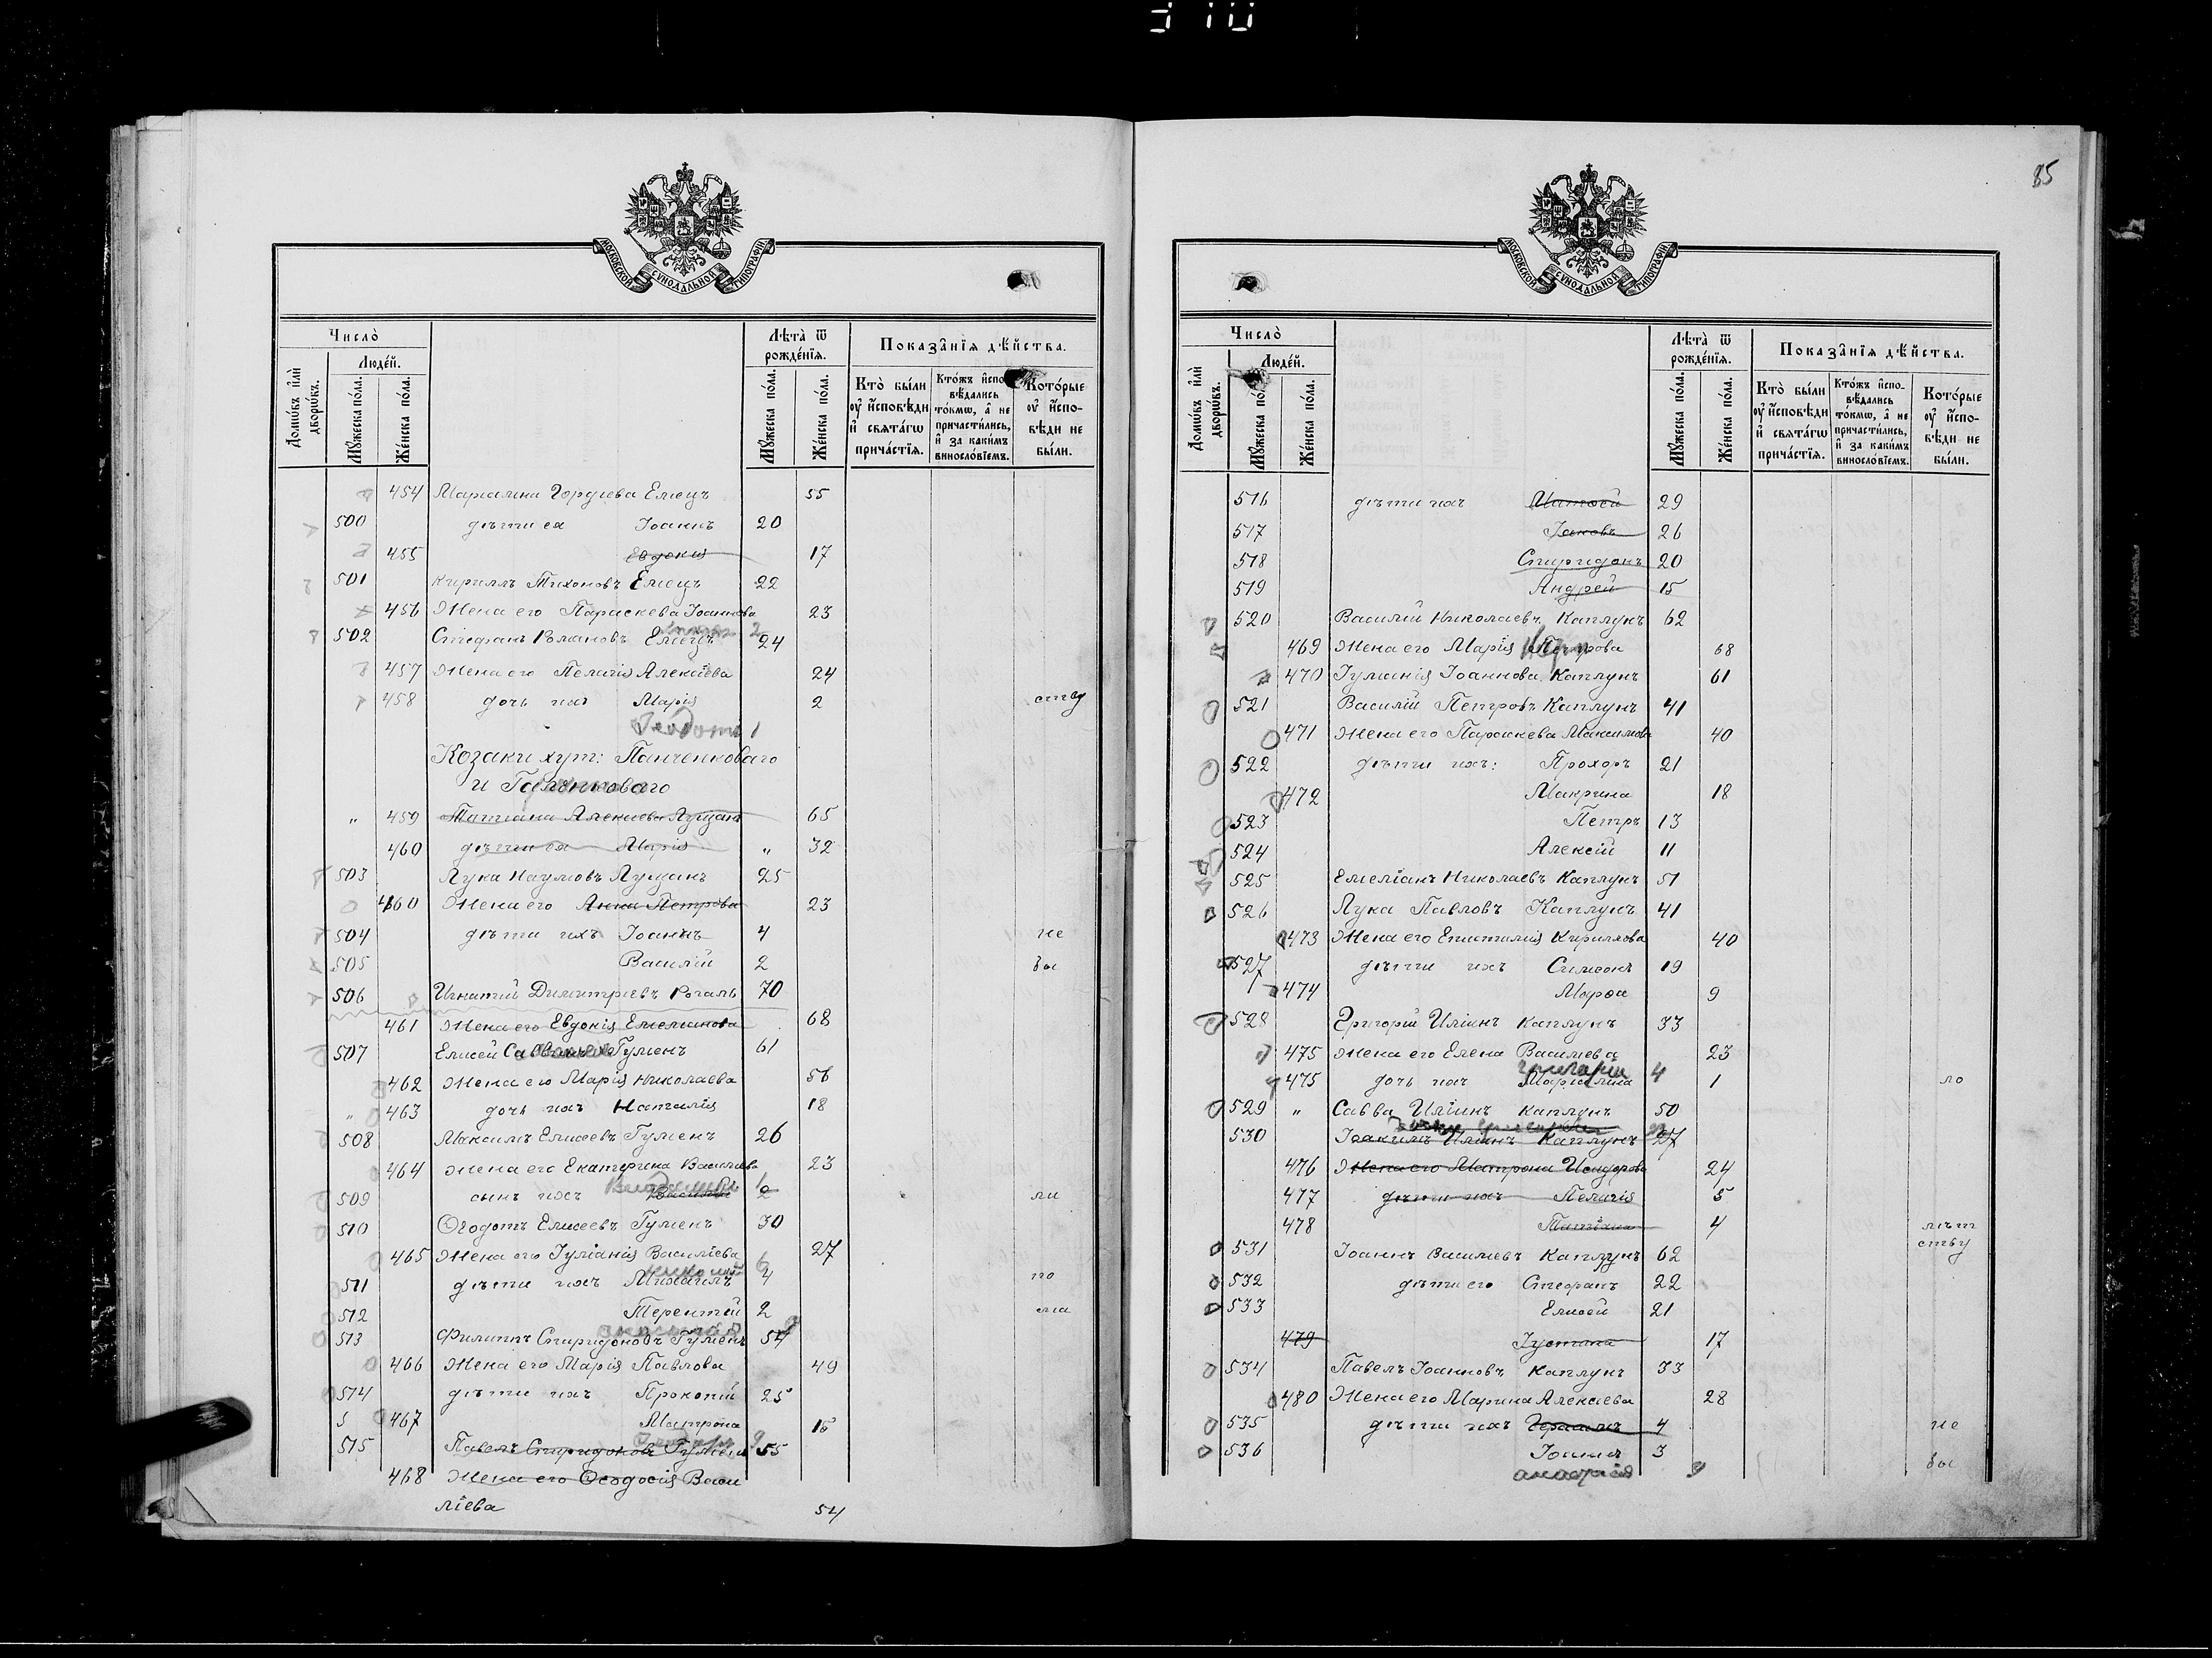 85
МОСКОВСКОЙ СУНОДАЛЬНОЙ ТИПОГРАФІИ.
Число̀
Лѣта̀ ѿ рожде́нїѧ.
Показа̑нїѧ дѣ́йства.
Домѡ́въ и҆лѝ дворѡ́въ.
Люде́й.
Мꙋ́жеска по́ла.
Же́нска по́ла.
Мꙋ́жеска по́ла.
Же́нска по́ла.
Кто̀ бы́ли ᲂу҆ и҆́сповѣди и҆ свѧта́гѡ прича́стїѧ.
Кто́жъ и҆спо-вѣ́дались то́кмѡ, а҆ не причасти́лись, и҆ за каки́мъ виносло́вїемъ.
Кото́рые ᲂу҆ и҆́спо-вѣди не бы́ли.
454 Маріамна Гордіева Емецъ 55
500 дѣти ея Іоаннъ 20
455 Евдокія 17
501 Кириллъ Тихоновъ Емецъ 22
456 Жена его Параскева Іоаннова 23
502 Стефанъ Романовъ Емецъ 24
457 Жена его Пелагія Алексіева 24
458 дочь ихъ Марія 2
1
Козаки хут: Панченковаго
и
459 Татіана Алексіева Лущанъ 65
460 дѣти ея Марія „ 32
503 Лука Наумовъ Лущанъ 25
460 Жена его Анна Петрова 23
504 дѣти ихъ Іоаннъ 4 не
505 Василій 2 бы
506 Игнатій Димитріевъ Рогаль 70
461 Жена его Евдокія Емеліанова 68
507 Елисей Гуменъ 61
462 Жена его Марія Николаева 56
„ 463 дочь ихъ Наталія 18
508 Максимъ Елисеевъ Гуменъ 26
464 Жена его Екатерина Василіева 23
509 сынъ ихъ 2 ли
510 Ѳеодотъ Елисеевъ Гуменъ 30
465 Жена его Іуліанія Василіева 27
511 дѣти ихъ Михаилъ 4 по
512 Терентій 2
513 Филиппъ Спиридоновъ Гуменъ 54
466 Жена его Марія Павлова 49
514 дѣти ихъ Прокопій 25
467 Матрона 15
515 Павелъ Спиридоновъ Гуменъ 55
468 Жена его Ѳеодосія Васи
ліева 54
МОСКОВСКОЙ СУНОДАЛЬНОЙ ТИПОГРАФІИ.
Число̀
Лѣта̀ ѿ рожде́нїѧ.
Показа̑нїѧ дѣ́йства.
Домѡ́въ и҆лѝ дворѡ́въ.
Люде́й.
Мꙋ́жеска по́ла.
Же́нска по́ла.
Мꙋ́жеска по́ла.
Же́нска по́ла.
Кто̀ бы́ли ᲂу҆ и҆́сповѣди и҆ свѧта́гѡ прича́стїѧ.
Кто́жъ и҆спо-вѣ́дались то́кмѡ, а҆ не причасти́лись, и҆ за каки́мъ виносло́вїемъ.
Кото́рые ᲂу҆ и҆́спо-вѣди не бы́ли.
516 дѣти ихъ Матѳей 29
517 Іаковъ 26
518 Спиридонъ 20
519 Андрей 15
520 Василій Николаевъ Каплунъ 62
469 Жена его Марія Петрова 68
470 Іуліанія Іоаннова Каплунъ 61
521 Василій Петровъ Каплунъ 41
471 Жена его Параскева Максимова 40
522 дѣти ихъ: Прохоръ 21
472 Макрина 18
523 Петръ 13
524 Алексій 11
525 Емеліанъ Николаевъ Каплунъ 51
526 Лука Павловъ Каплунъ 41
473 Жена его Епистимія Кириллова 40
527 дѣти ихъ Симеонъ 19
474 Марѳа 9
528 Григорій Иліинъ Каплунъ 33
475 Жена его Елена Василіева 23
4
475 дочь ихъ Маріамна 1 ло
529 „ Савва Иліинъ Каплунъ 50
530 Іоакимъ Иліинъ Каплунъ 27
476 Жена его Матрона Исидорова 24
477 дѣти ихъ Пелагія 5
478 Татіана 4
531 Іоаннъ Василіевъ Каплунъ 62
532 дѣти его Стефанъ 22
533 Елисей 21
479 Іустина 17
534 Павелъ Іоанновъ Каплунъ 33
480 Жена его Марина Алексіева 28
535 дѣти ихъ 4 не
536 Іоаннъ 3 бы
анастасія